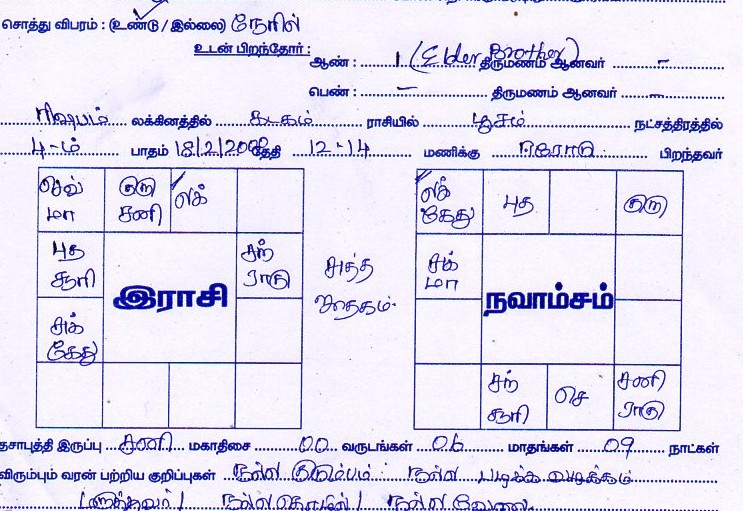 சொத்து விபரம் : (உண்டு / இல்லை) நேரில்
உடன் பிறந்தோர் :
ஆண் : 1 (Elder Brother) திருமணம் ஆனவர் –
பெண் : – திருமணம் ஆனவர் –
ரிஷபம் லக்கினத்தில் கடகம் ராசியில் பூசம் நட்சத்திரத்தில்
4-ம் பாதம் 18/2/2000 தேதி 12-14 மணிக்கு ஈரோடு பிறந்தவர்
செவ் மா
குரு சனி
லக்
புத சூரி
சந் ராகு
சுக் கேது
இராசி
சுத்த ஜாதகம்.
லக் கேது
புத
குரு
சுக் மா
நவாம்சம்
சந் சூரி
செ
சனி ராகு
தசாபுத்தி இருப்பு சனி மகாதிசை 00 வருடங்கள் 06 மாதங்கள் 09 நாட்கள்
விரும்பும் வரன் பற்றிய குறிப்புகள் நல்ல குடும்பம் நல்ல பழக்க வழக்கம்
நல்ல தொழில் / நல்ல வேலை